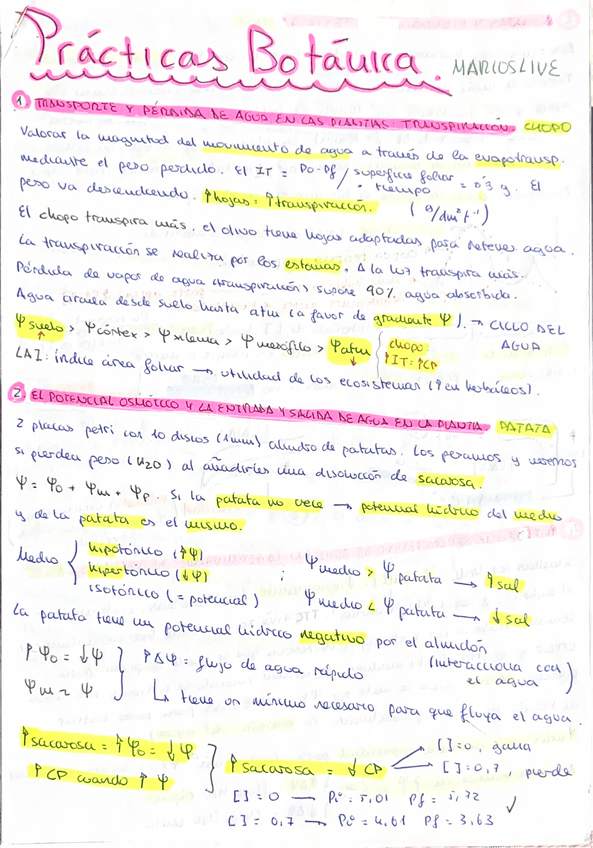 Prácticas Botánica. MARIOSLIVE
1 TRANSPORTE Y PÉRDIDA DE AGUA EN LAS PLANTAS: TRANSPIRACIÓN. CHOPO
Valorar la magnitud del movimiento de agua a través de la evapotransp.
mediante el peso perdido. El IT = Po-Pf / superficie foliar · tiempo = 0'3 g. El
peso va descendiendo. ↑hojas = ↑transpiración. (g/dm² t⁻¹)
El chopo transpira más. el olivo tiene hojas adaptadas para retener agua.
La transpiración se realiza por los estomas. A la luz transpira más.
Pérdida de vapor de agua (transpiración) supone 90% agua absorbida.
Agua circula desde suelo hasta atm (a favor de gradiente Ψ). → CICLO DEL AGUA
Ψsuelo > Ψcórtex > Ψxilema > Ψmesófilo > Ψatm { chopo: ↑IT: ↑CP
LAI: índice área foliar → utilidad de los ecosistemas (↑ en herbáceos).
2 EL POTENCIAL OSMÓTICO Y LA ENTRADA Y SALIDA DE AGUA EN LA PLANTA. PATATA
2 placas petri con 10 discos (1mm) almidón de patatas. Los pesamos y vemos
si pierden peso (H2O) al añadirles una disolución de sacarosa.
Ψ = Ψo + Ψm + Ψp. Si la patata no crece → potencial hídrico del medio
y de la patata es el mismo.
Medio { hipotónico (↑Ψ)
hipertónico (↓Ψ) ; Ψmedio > Ψ patata → ↑sal
isotónico (= potencial) Ψmedio < Ψ patata → ↓sal
La patata tiene un potencial hídrico negativo por el almidón
(interacciona con el agua)
↑Ψo = ↓Ψ } ↑ΔΨ = flujo de agua rápido
Ψm ~ Ψ ↳ tiene un mínimo necesario para que fluya el agua.
↑sacarosa = ↑Ψo = ↓Ψ } ↑sacarosa = ↓CP → []=0, gana
↑CP cuando ↑Ψ → []=0,7, pierde
[] = 0 → Pi = 5,01 Pf = 5,72 ✓
[] = 0,7 → Pi = 4,61 Pf = 3,63